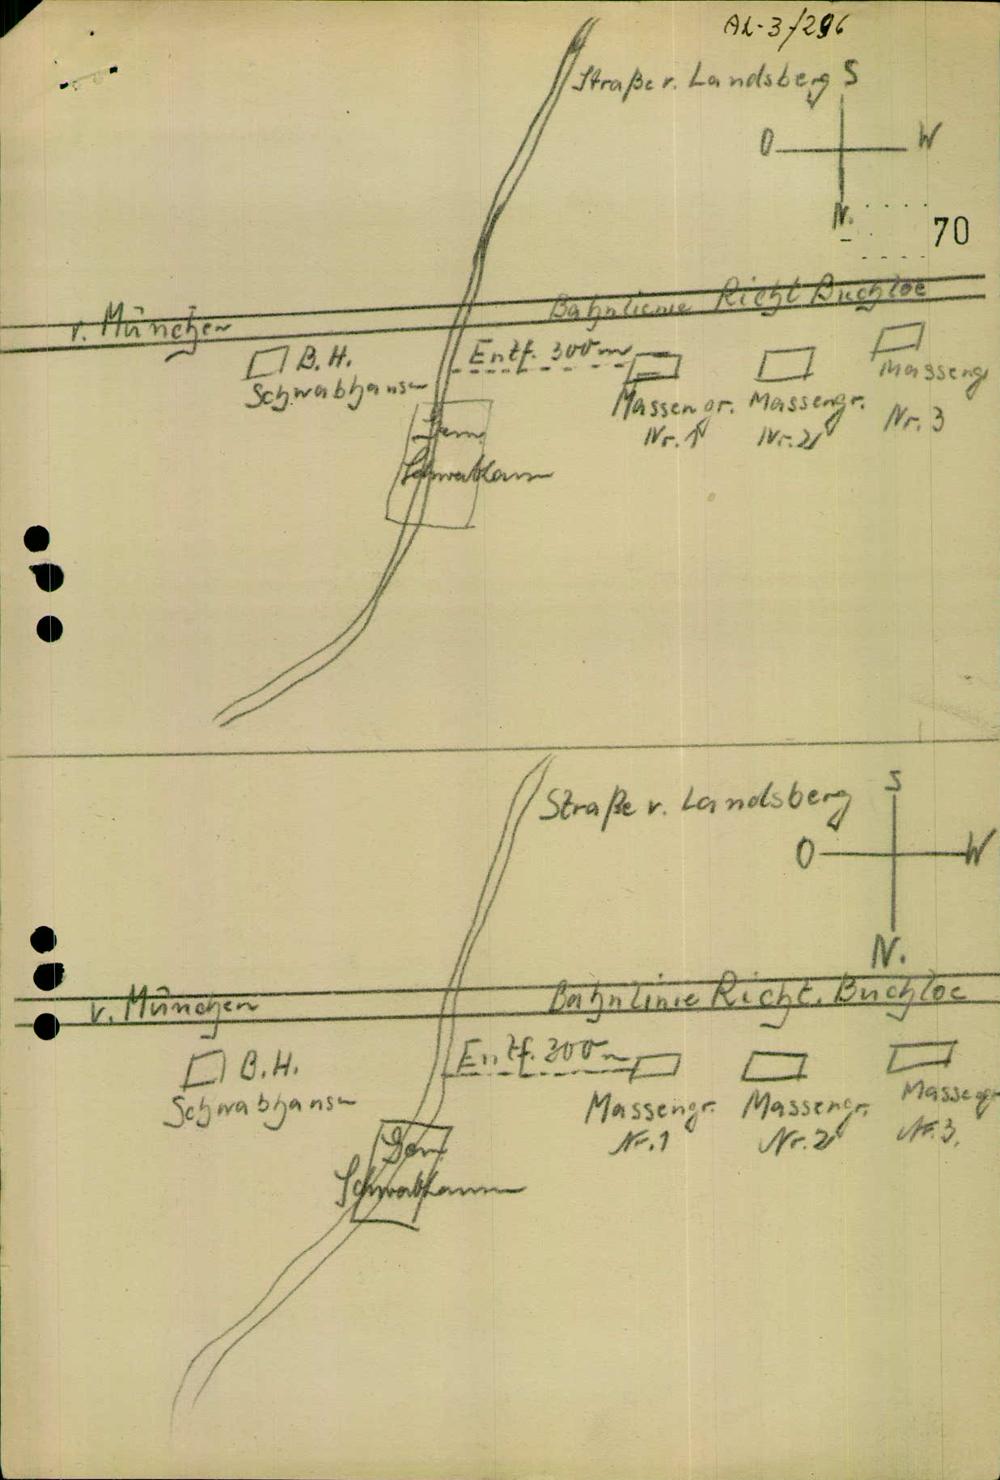 AL-3/296
Straße v. Landsberg
S
O W
N.
70
v. München
Bahnlinie Richt Buchloe
B.H.
Schwabhausen
Entf. 300 m
Massengr.
Nr. 1
Massengr.
Nr. 2
Masseng
Nr. 3
Gem.
Schwabhausen
Straße v. Landsberg
S
O W
N.
v. München
Bahnlinie Richt. Buchloe
B.H.
Schwabhausen
Entf. 300 m
Massengr.
Nr. 1
Massengr.
Nr. 2
Massengr
Nr. 3.
Gem.
Schwabhausen